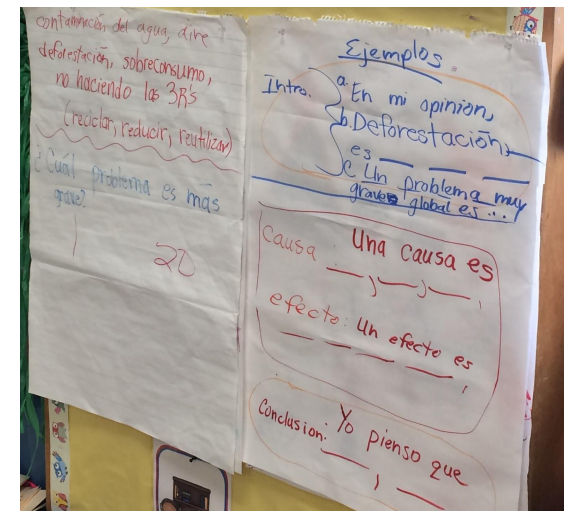 contaminación del agua, aire
deforestación, sobreconsumo,
no haciendo las 3R's
(reciclar, reducir, reutilizar)
¿Cuál problema es más
grave?
Ejemplos.
Intro.
a. En mi opinion,
b. Deforestación,
es
c. Un problema muy
grave global es...
Causa Una causa es
efecto: Un efecto es
Conclusion: Yo pienso que